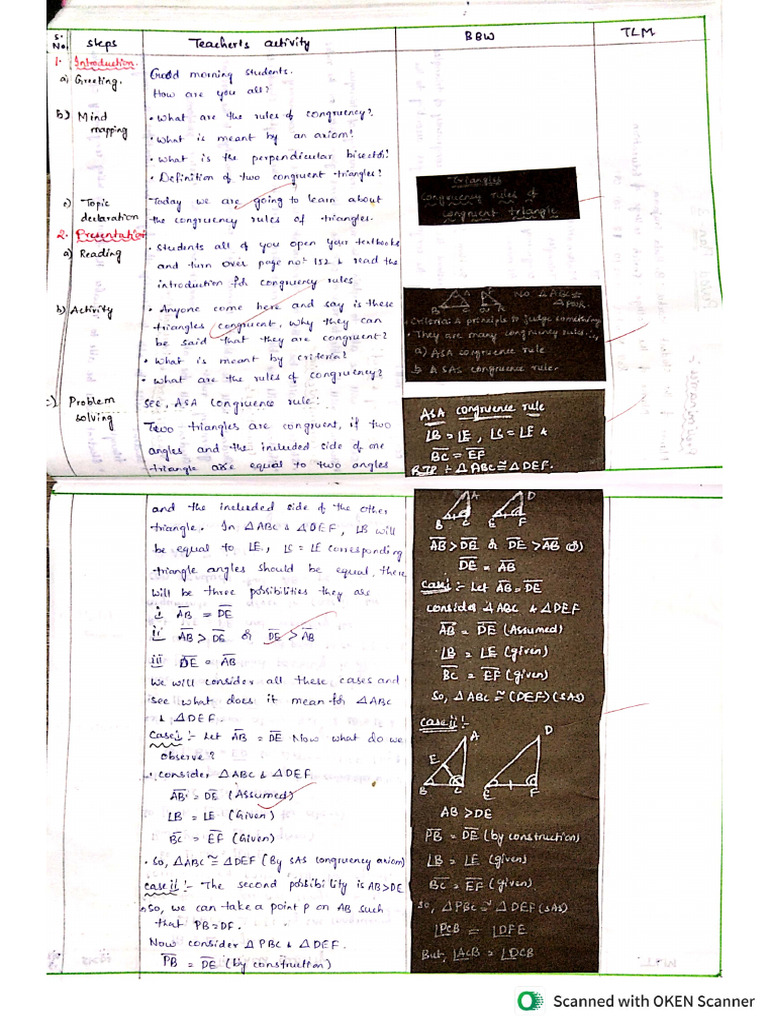 S. No. Steps Teacher's activity BBW TLM
1. Introduction.
a) Greeting.
Good morning students.
How are you all?
b) Mind mapping
• What are the rules of congruency?
• What is meant by an axiom?
• What is the perpendicular bisector?
• Definition of two congruent triangles?
c) Topic declaration
Today we are going to learn about
the congruency rules of triangles.
Triangles
Congruency rules of
congruent triangle
2. Presentation
a) Reading
• Students all of you open your textbooks
and turn over page no! 152 & read the
introduction for congruency rules
b) Activity
• Anyone come here and say is these
triangles congruent, why they can
be said that they are congruent?
• What is meant by criteria?
• What are the rules of congruency?
B C Q R
NO △ABC ≅
△PQR
• Criteria: A principle to judge something
• They are many congruency rules
a) ASA congruence rule
b. A SAS congruence rule.
c) Problem solving
see, ASA congruence rule:
Two triangles are congruent, if two
angles and the included side of one
triangle are equal to two angles
ASA congruence rule
∠B = ∠E, ∠C = ∠F &
BC = EF
RTP ÷ △ABC ≅ △DEF.
and the included side of the other
triangle. In △ABC & △DEF, ∠B will
be equal to ∠E, ∠C = ∠F corresponding
triangle angles should be equal, there
will be three possibilities they are
i AB = DE
ii AB > DE or DE > AB
iii DE = AB
We will consider all these cases and
see what does it mean for △ABC
& △DEF.
Case i :- Let AB = DE Now what do we
observe?
• consider △ABC & △DEF
AB = DE (Assumed)
∠B = ∠E (Given)
BC = EF (Given)
• So, △ABC ≅ △DEF (By SAS congruency axiom)
Case ii :- The second possibility is AB > DE
• So, we can take a point P on AB such
that PB = DF.
Now consider △PBC & △DEF.
PB = DE (by construction)
A D
B C E F
AB > DE or DE > AB (or)
DE = AB
Case i :- Let AB = DE
consider △ABC & △DEF
AB = DE (Assumed)
∠B = ∠E (given)
BC = EF (given)
So, △ABC ≅ (DEF) (SAS)
Case ii :-
A D
E
B C E F
AB > DE
PB = DE (by construction)
∠B = ∠E (given)
BC = EF (given).
So, △PBC ≅ △DEF (SAS)
∠PCB = ∠DFE
But, ∠ACB = ∠DCB
Scanned with OKEN Scanner